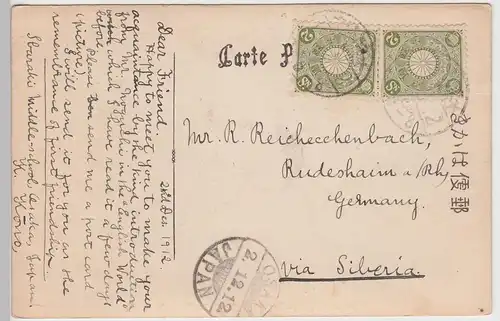 Carte P
きかは便郵
Mr. R. Reichecchenbach,
Rudesheim a/Rh,
Germany.
via Siberia
2nd Dec 1912.
Dear Friend.
Happy to meet you to make your
acquaintance by the kind introduction
from Mr. in the "English World"
which I have read it a few days
before.
Please send me a post card
(picture)
I will send it for you as the
remembrance of first friendship.
K. Kōno,
Ibaraki Middle-school, Osaka, Japan.
OSAKA
2.12.12
JAPAN